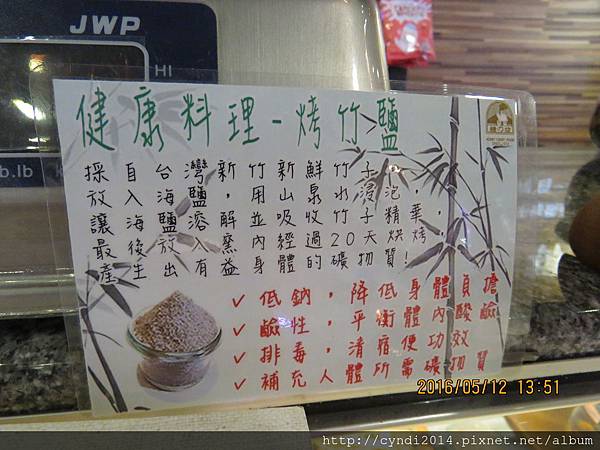 JWP
HI
健康料理-烤竹鹽
採自台灣新竹新鮮竹子
放入海鹽,用山泉水浸泡,
讓海鹽溶解並吸收竹子精華,
最後放入窯內經過20天烘烤,
產生出有益身體的礦物質!
✓低鈉,降低身體負擔
✓鹼性,平衡體內酸鹼
✓排毒,清宿便功效
✓補充人體所需礦物質
2016/05/12 13:51
http://cyndi2014.pixnet.net/album